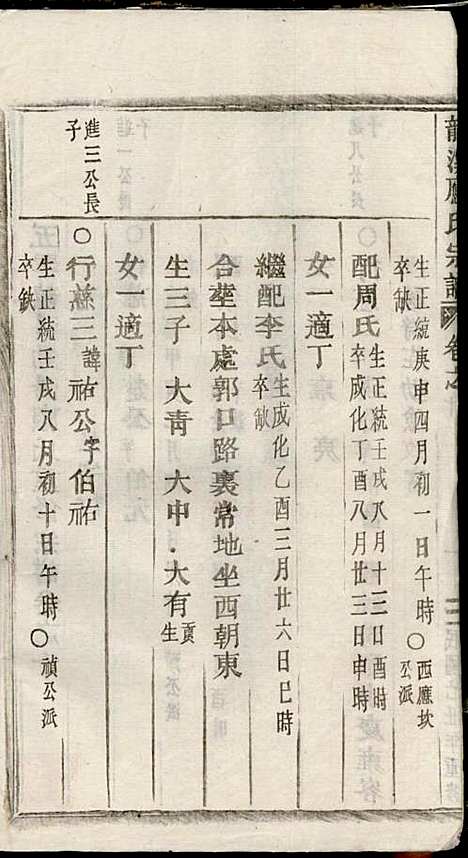 龍溪應氏宗譜 卷之
生正統庚申四月初一日午時 ○ 西應坎公派
卒缺
配周氏 生正統壬戌八月十二日酉時
卒成化丁酉八月廿三日申時
女一適丁
繼配李氏 生成化乙酉三月廿六日巳時
卒缺
合塟本處郭口路裏常地坐西朝東
生三子 大靑 大中 大有 貢生
女一適丁
進三公長子
○ 行慈三 諱祐公字伯祐
生正統壬戌八月初十日午時 ○ 禎公派
卒缺